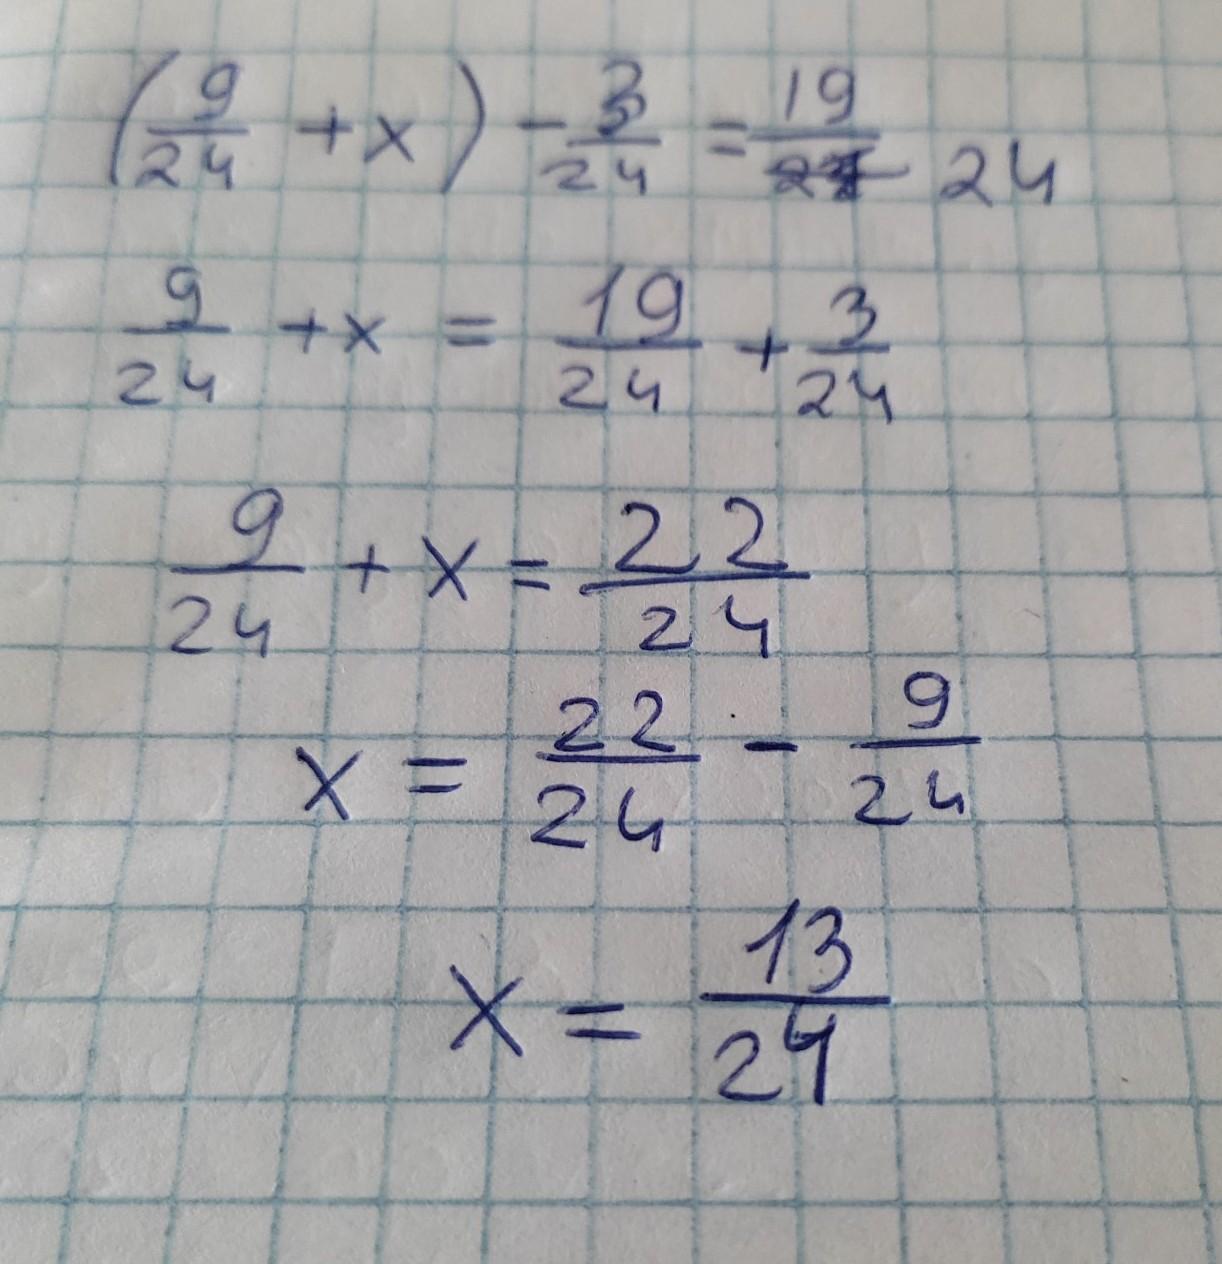 (9/24 + x) - 3/24 = 19/24
9/24 + x = 19/24 + 3/24
9/24 + x = 22/24
x = 22/24 - 9/24
x = 13/24